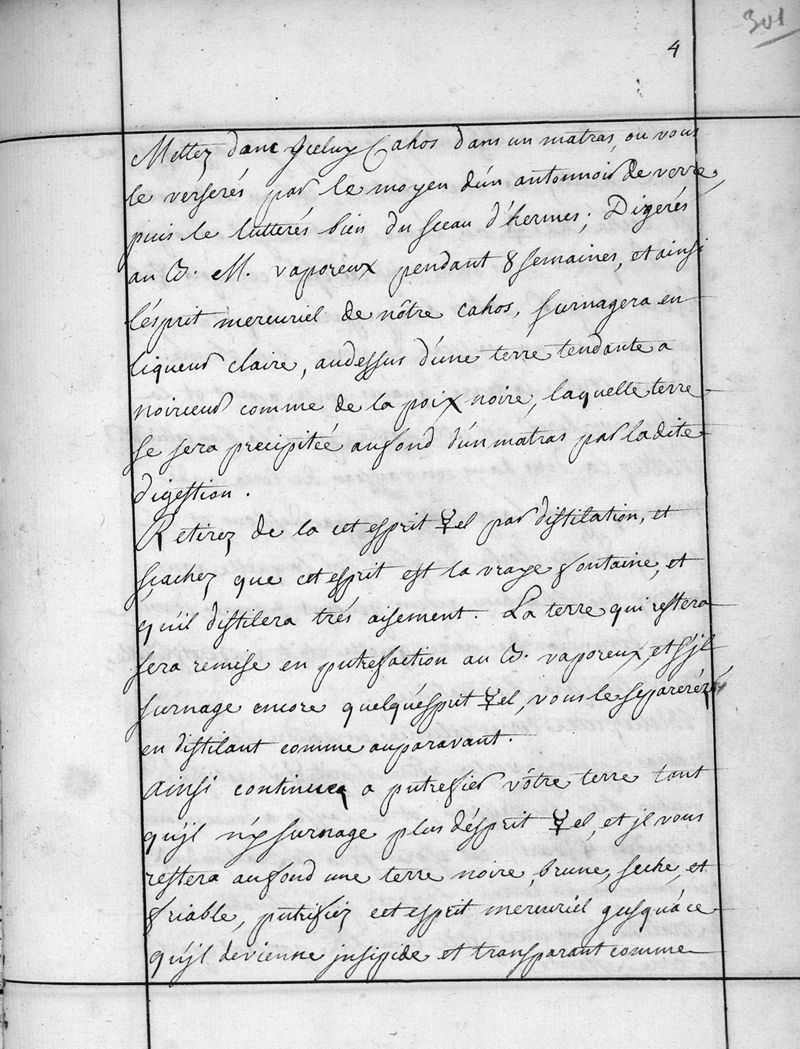 301
4
Mettez donc Jceluy Cahos dans un matras, ou vous
le verserés par le moyen d'un antonnoir de verre,
puis le lutterés bien du sceau d'hermes; Digerés
au B. M. vaporeux pendant 8 semaines, et ainsi
l'esprit mercuriel de nôtre cahos, surnagera en
liqueur claire, audessus d'une terre tendante a
noirceur comme de la poix noire, laquelle terre
se sera precipitée aufond d'un matras par ladite
digestion.
Retirez de la cet esprit ☿el par distilation, et
sçachez que cet esprit est la vraye fontaine, et
qu'il distilera trés aisement. La terre qui restera
sera remise en putrefaction au B. vaporeux, et s'jl
surnage encore quelqu'esprit ☿el, vous le separeréz
en distilant comme auparavant.
Ainsi continuez a putrefier vôtre terre tant
qu'jl n'y surnage plus d'ésprit ☿el, et jl vous
restera aufond une terre noire, brune, seche, et
friable, putrifiez cet esprit mercuriel jusqu'áce
qu'jl devienne jnsipide et transparant comme